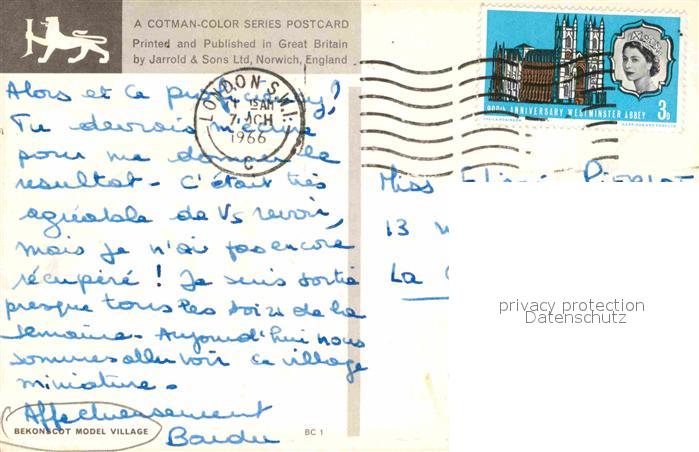 A COTMAN-COLOR SERIES POSTCARD
Printed and Published in Great Britain
by Jarrold & Sons Ltd, Norwich, England
LONDON S.W.1.
AM
7 MCH
1966
C
900TH ANNIVERSARY WESTMINSTER ABBEY
3D
Alors et ce
Tu devrais m'écrire
pour me donner le
resultat - C'était très
agréable de Vs revoir,
mais je n'ai pas encore
récupéré ! Je suis sortie
presque tous les soirs de la
semaine - Aujourd'hui nous
sommes allés voir ce village
miniature -
Affectueusement
BEKONSCOT MODEL VILLAGE
BC 1
Miss
13
La
privacy protection
Datenschutz